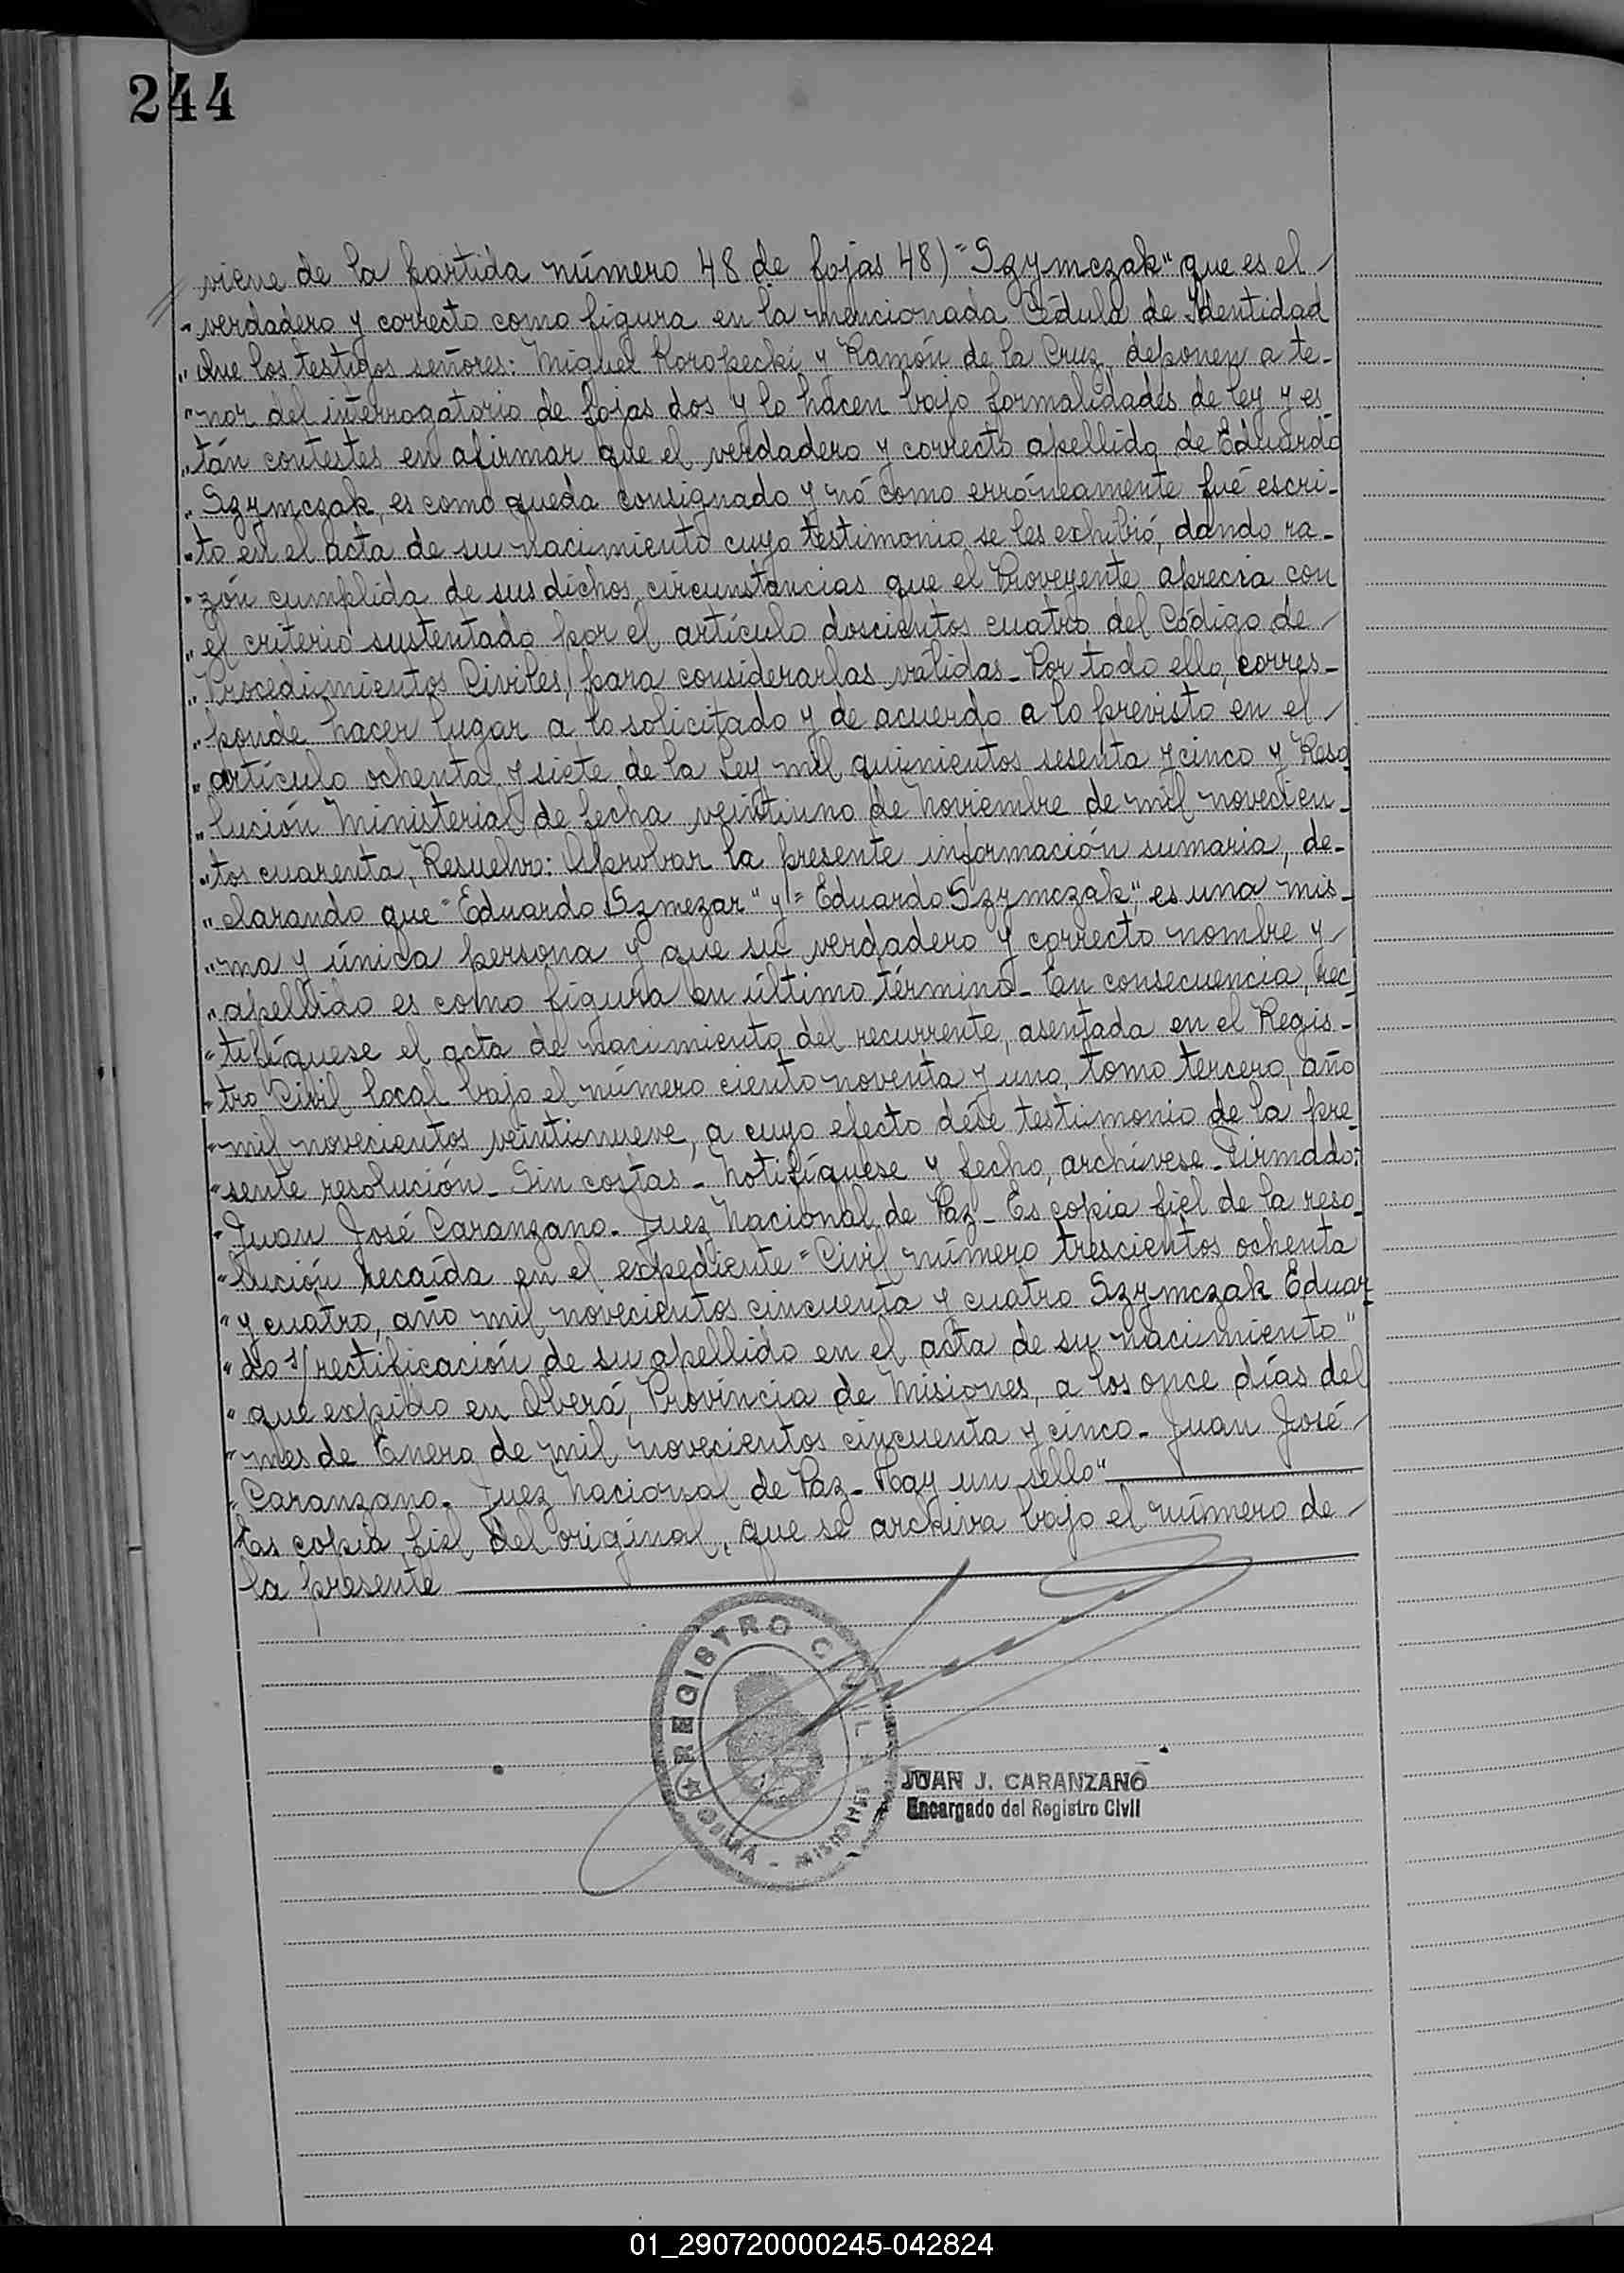 244
viene de la partida número 48 de fojas 48) "Szymczak" que es el
" verdadero y correcto como figura en la mencionada Cédula de Identidad
" Que los testigos señores: Miguel Koropecki y Ramón de la Cruz, deponen a te-
" nor del interrogatorio de fojas dos y lo hacen bajo formalidades de ley y es-
" tán contestes en afirmar que el verdadero y correcto apellido de Eduardo
" Szymczak, es como queda consignado y nó como erróneamente fué escri-
" to en el acta de su nacimiento cuyo testimonio se les exhibió, dando ra-
" zón cumplida de sus dichos, circunstancias que el Proveyente aprecia con
" el criterio sustentado por el artículo doscientos cuatro del Código de
" Procedimientos Civiles, para considerarlas válidas_ Por todo ello, corres-
" ponde hacer lugar a lo solicitado y de acuerdo a lo previsto en el
" artículo ochenta y siete de la Ley mil quinientos sesenta y cinco y Reso
" lución Ministerial de fecha veintiuno de Noviembre de mil novecien-
" tos cuarenta, Resuelvo: Aprobar la presente información sumaria, de-
" clarando que "Eduardo Szmezar" y "Eduardo Szymczak", es una mis-
" ma y única persona y que su verdadero y correcto nombre y
" apellido es como figura en último término_ En consecuencia, rec
" tifíquese el acta de nacimiento del recurrente, asentada en el Regis-
" tro Civil local bajo el número ciento noventa y uno, tomo tercero, año
" mil novecientos veintinueve, a cuyo efecto dése testimonio de la pre
" sente resolución_ Sin costas_ Notifíquese y fecho, archívese_ Firmado:
" Juan José Caranzano. Juez Nacional de Paz_ Es copia fiel de la reso-
" lución recaída en el expediente "Civil número trescientos ochenta
" y cuatro, año mil novecientos cincuenta y cuatro Szymczak Eduar-
" do s/ rectificación de su apellido en el acta de su nacimiento"
" que expido en Oberá, Provincia de Misiones, a los once días del
" mes de Enero de mil novecientos cincuenta y cinco. Juan José
" Caranzano. Juez Nacional de Paz_ Hay un sello"
Es copia fiel del original, que se archiva bajo el número de
la presente
REGISTRO CIVIL
OBERA - MISIONES
JUAN J. CARANZANO
Encargado del Registro Civil
01_290720000245-042824